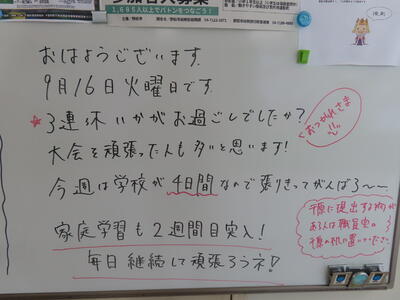 1,685人以上でバトンをつなごう!
おはようございます。
9月16日火曜日です。
★3連休いかがお過ごしでしたか?
おつかれさま
大会を頑張った人も多いと思います!
今週は学校が4日間なので張りきってがんばろ〜〜
家庭学習も2週間目突入!
毎日継続して頑張ろうネ!
千原に提出する物が
ある人は職員室の
千原の机に置いてください